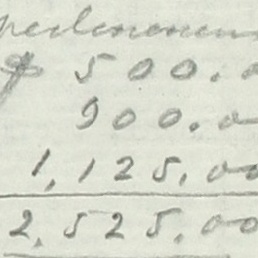 $ 500.0
900.0
1,125.00
2,525.00